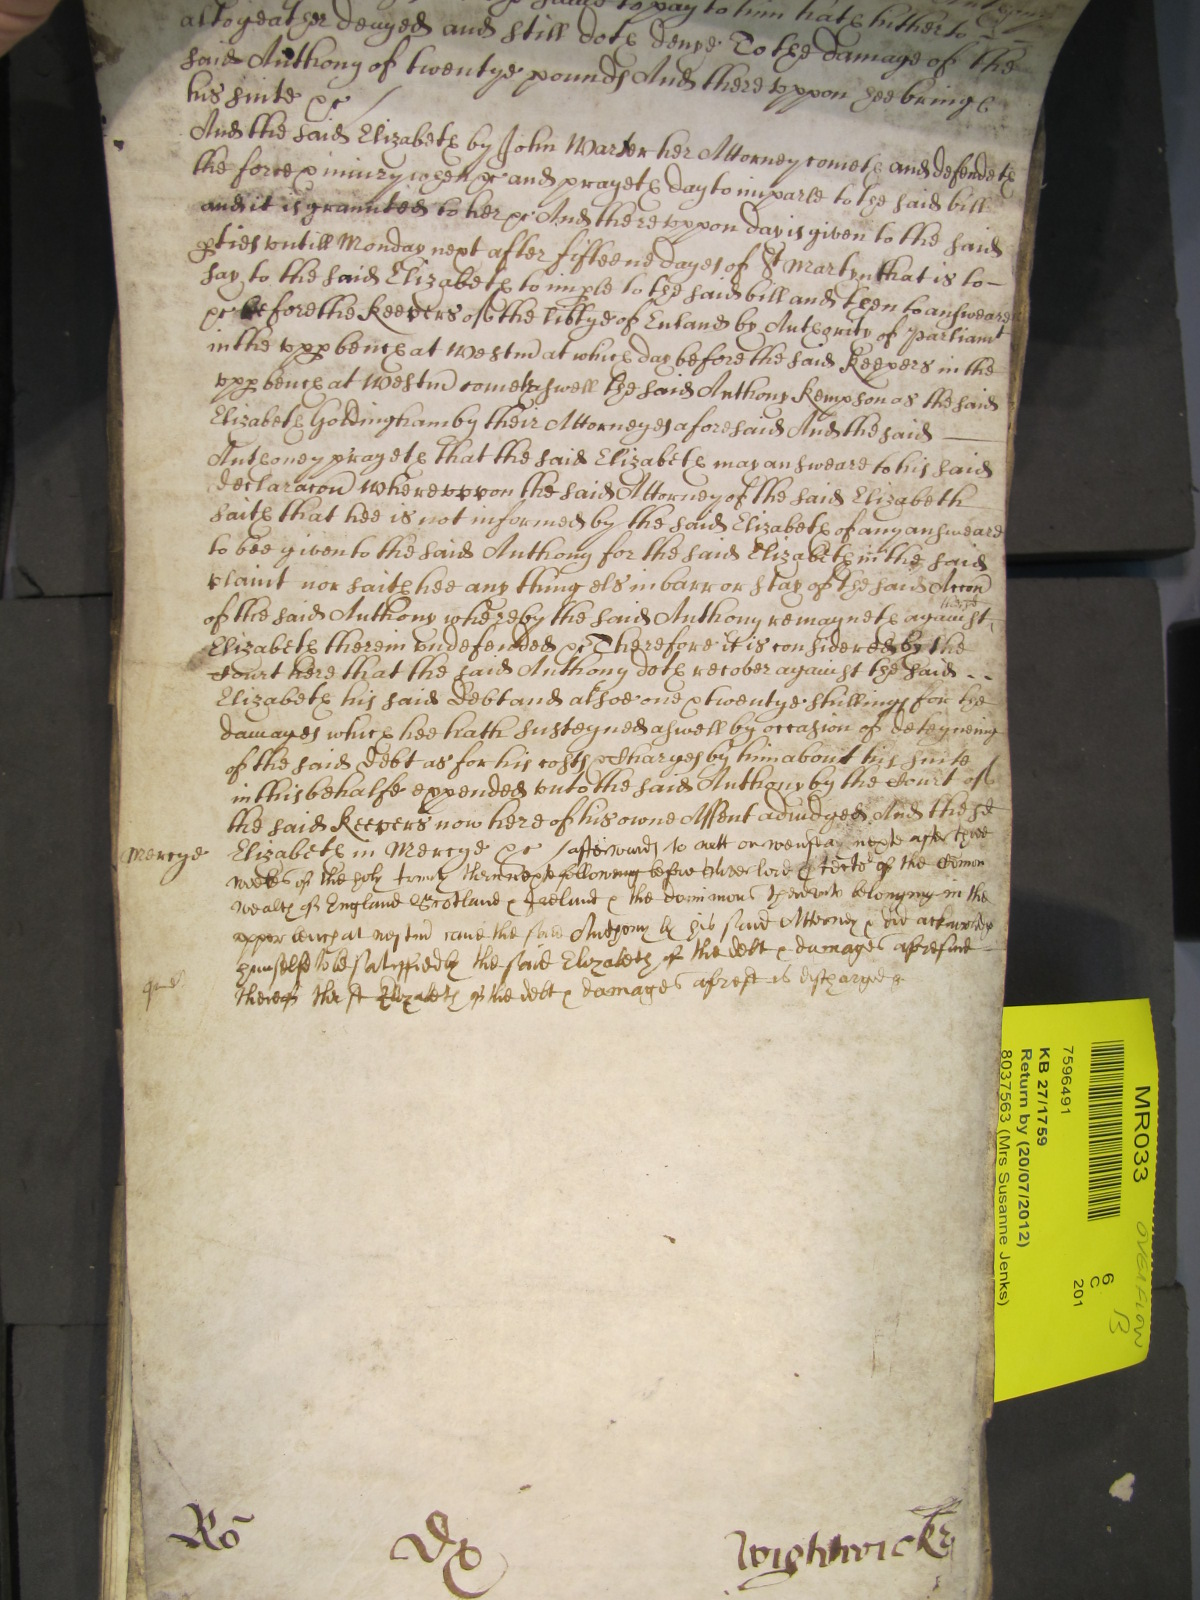 to pay to him hath hitherto
altogeather denyed and still doth denye To the damage of the
said Anthony of twentye pounds And thereuppon hee bringe
his suite &c
And the said Elizabeth by John Warter her Attorney cometh and defendeth
the force & iniury when &c and prayeth day to imparle to the said bill
and it is graunted to her &c And thereuppon day is given to the said
pties untill Monday next after fifteene dayes of St Martyn that is to
say to the said Elizabeth to imple to the said bill and then to answeare
&c before the Keepers of the libtye of England by Authority of Parliamt
in the upp bench at Westm at which day before the said Keepers in the
upp bench at Westm cometh aswell the said Anthony Kempson as the said
Elizabeth Goldingham by their Attorneyes aforesaid And the said
Anthoney prayeth that the said Elizabeth may answeare to his said
declaracon Whereuppon the said Attorney of the said Elizabeth
saith that hee is not informed by the said Elizabeth of any answeare
to bee given to the said Anthony for the said Elizabeth in the said
plaint nor saith hee any thing els in barr or stay of the said Accon
of the said Anthony whereby the said Anthony remayneth against
Elizabeth therein undefended &c Therefore it is considered by the
Court here that the said Anthony doth recover against the said
Elizabeth his said Debt and alsoe one & twentye shillings for the
damages which hee hath susteyned aswell by occasion of deteyneing
of the said Debt as for his costs & Charges by him about his suite
in this behalfe expended unto the said Anthony by the Court of
the said Keepers now here of his owne Assent adiudged And the sd
Mercye Elizabeth in Mercye &c / afterwards to witt on wensday next after three
weekes of the holy trinity then next following before Oliver lord Ptector of the Comon
wealth of England Scotland & Ireland & the dominions thereunto belonging in the
upper bench at westm came the said Anthony by his said Attorney & did acknowledge
himselfe to be satisfied by the said Elizabeth of the debt & damages aforesaid
therefore the sd Elizabeth of the debt & damages aforesd is discharged &c
Ro Dx Wightwicke
MR033 OVERFLOW B
6
C
201
7596491
KB 27/1759
Return by (20/07/2012)
8037563 (Mrs Susanne Jenks)